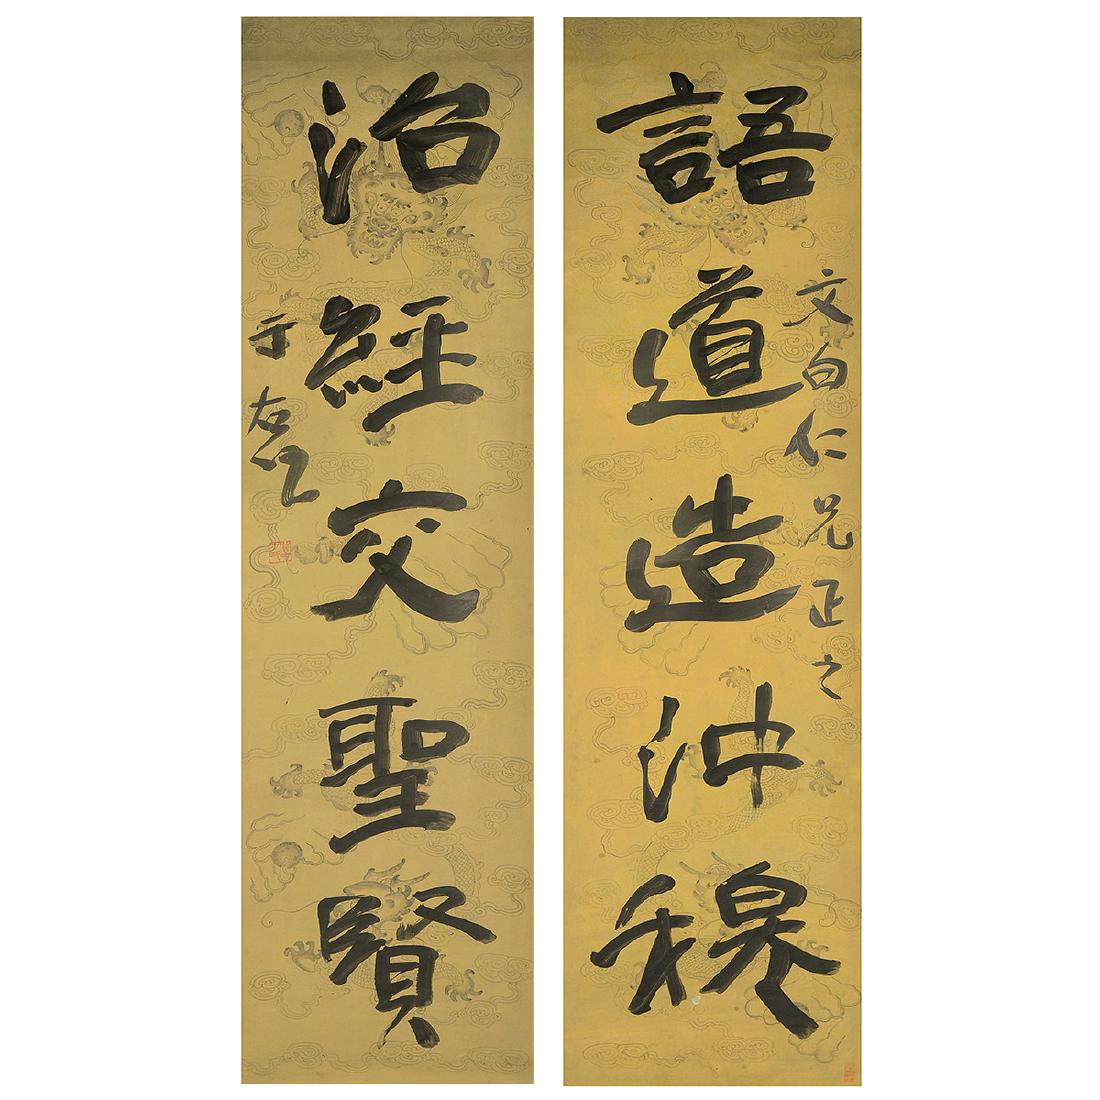 文白仁兄正之
語道造沖穆
治經交聖賢
于右任